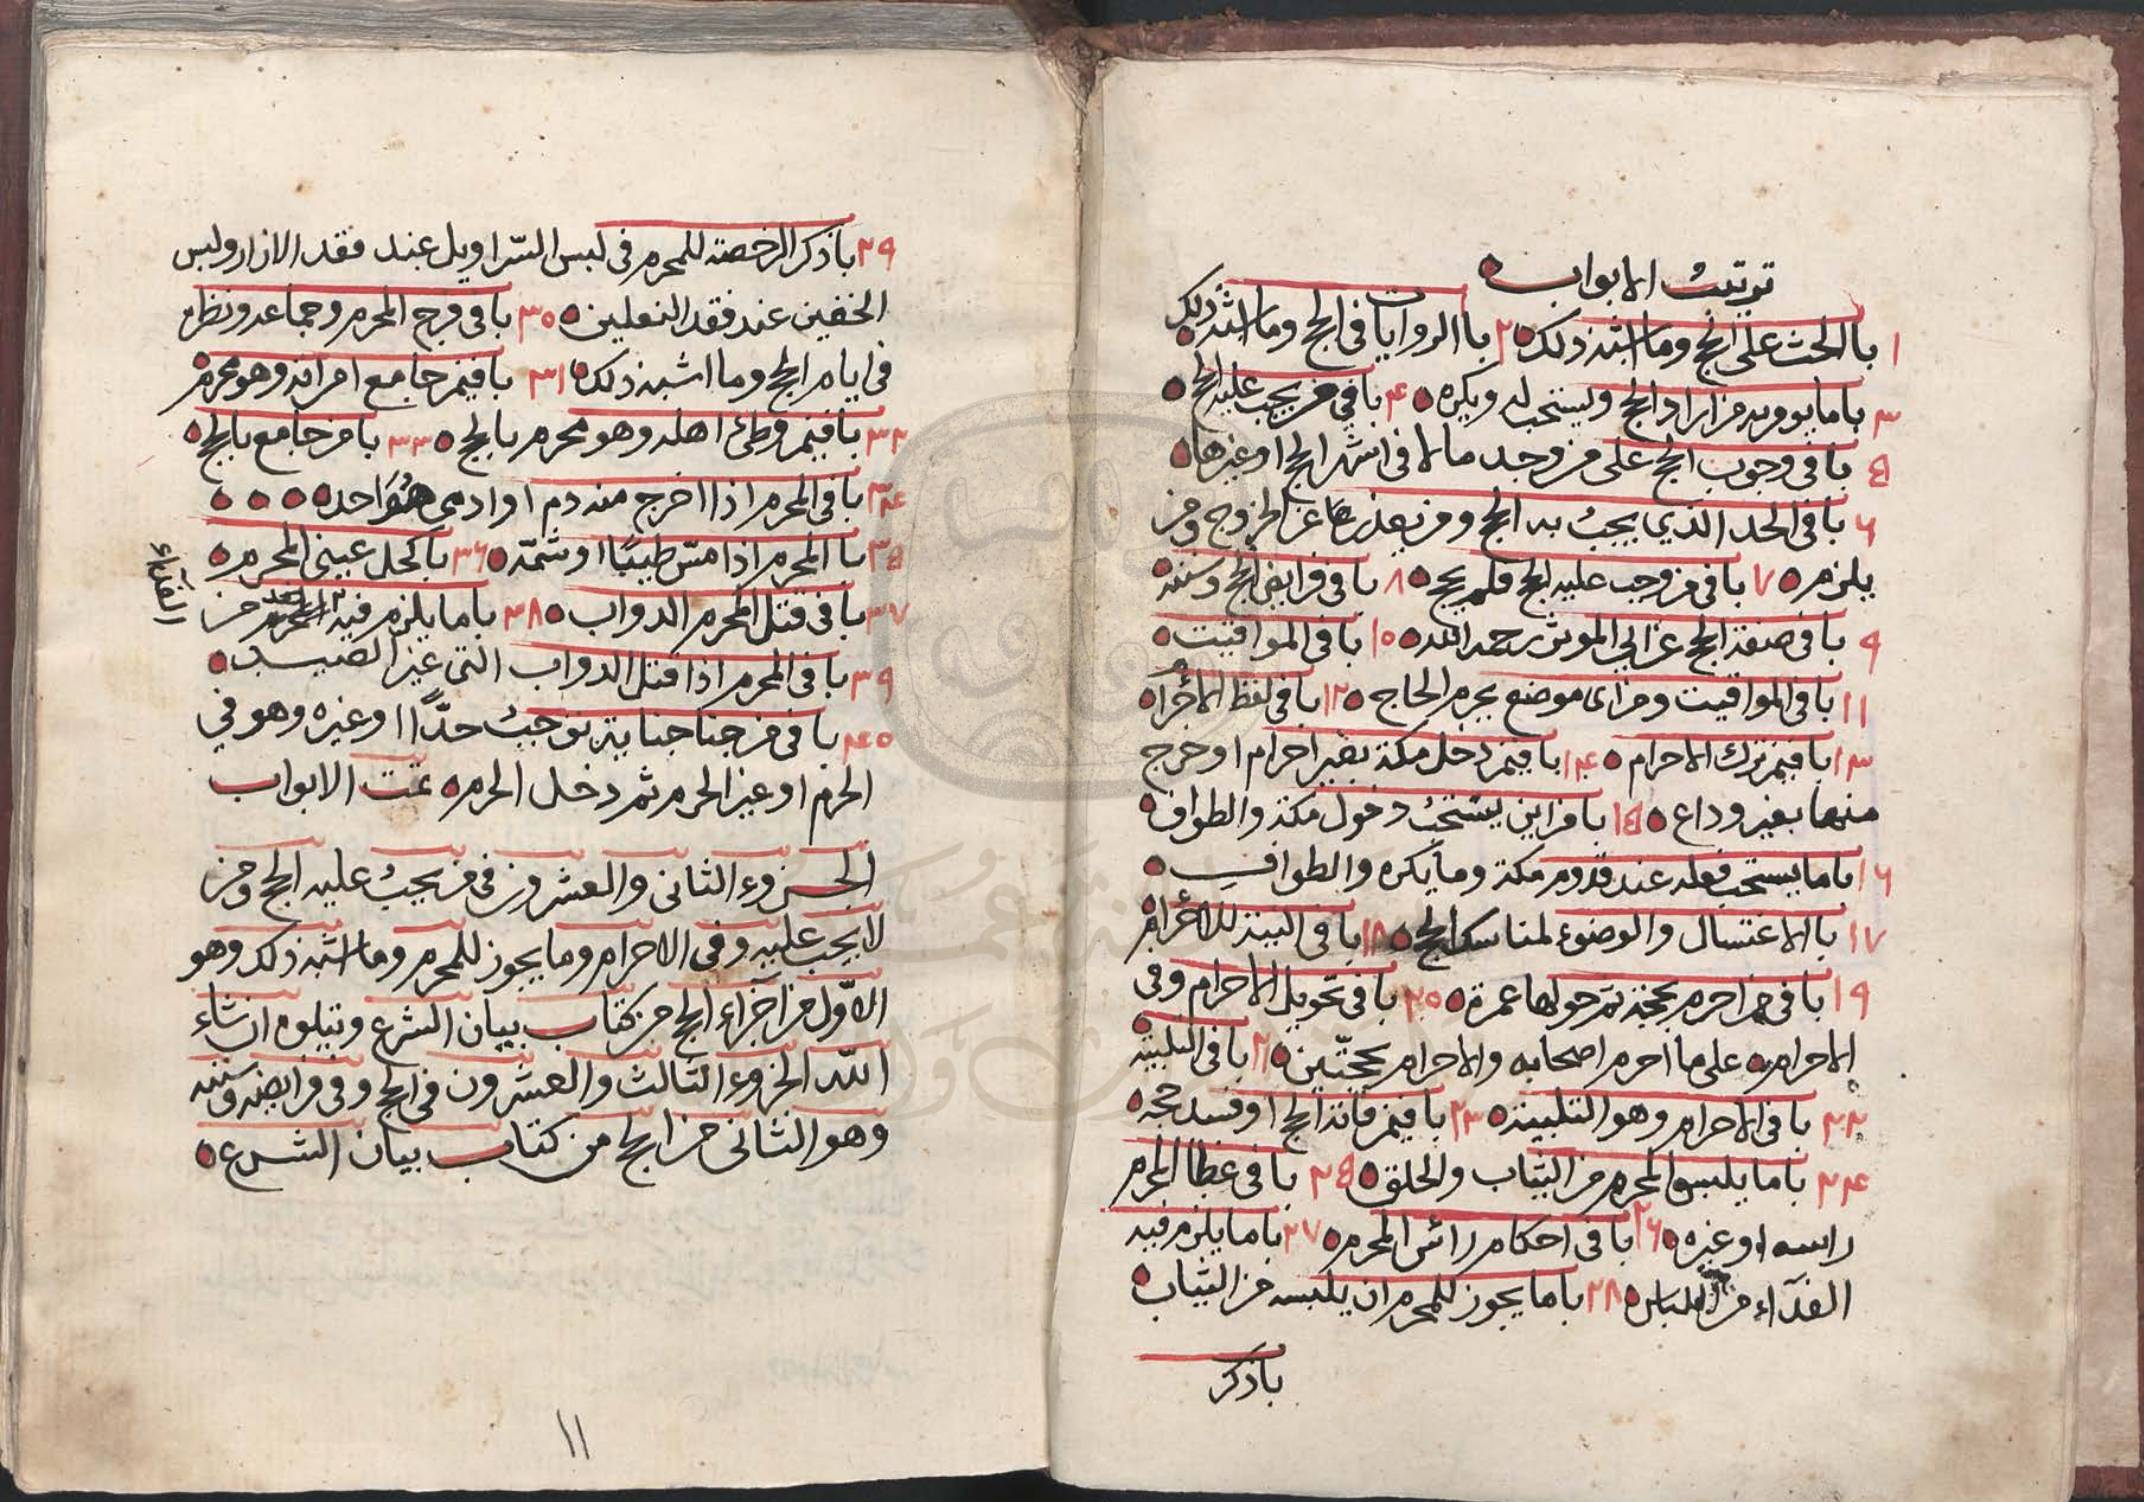 ترتيب الابواب
١ با الحث على الحج وما اشبه ذلك ٢ با الروايات في الحج وما اشبه ذلك
٣ با ما يومر به من اراد الحج ويستحب له ويكره ٤ با في من يجب عليه الحج
٥ با في وجوب الحج على من وجد مالا في اشهر الحج او غيرها
٦ با في الحد الذي يجب به الحج ومن يعذر عن الخروج ومن
يلزمه ٧ با في من وجب عليه الحج فلم يحج ٨ با في فرايض الحج وسننه
٩ با في صفة الحج عن ابي المؤثر رحمه الله ١٠ با في المواقيت
١١ با في المواقيت ومن اى موضع يحرم الحاج ١٢ با في لفظ الاحرام
١٣ با فيمن ترك الاحرام ١٤ با فيمن دخل مكة بغير احرام او خرج
منها بغير وداع ١٥ با من اين يستحب دخول مكة والطواف
١٦ با ما يستحب فعله عند قدوم مكة وما يكره والطواف
١٧ با الاغتسال والوضوء لمناسك الحج ١٨ با في النية للاحرام
١٩ با في من احرم بحجة ثم حولها عمرة ٢٠ با في تحويل الاحرام وفى
الاحرام على ما احرم اصحابه والاحرام بحجتين ٢١ با في التلبية
٢٢ با في الاحرام وهو التلبية ٢٣ با فيمن فاته الحج او فسد حجه
٢٤ با ما يلبس المحرم من الثياب والحلق ٢٥ با في غطا المحرم
راسه او غيره ٢٦ با في احكام رأس المحرم ٢٧ با ما يلزم فيه
الفدآء من اللباس ٢٨ با ما يجوز للمحرم ان يلبسه من الثياب
با ذكر
٢٩ با ذكر الرخصة للمحرم في لبس السراويل عند فقد الازار ولبس
الخفين عند فقد النعلين ٣٠ با في فرج المحرم وجماعه ونظره
في ايام الحج وما اشبه ذلك ٣١ با فيمن جامع امراته وهو محرم
٣٢ با فيمن وطئ اهله وهو محرم بالحج ٣٣ با من جامع بالحج
٣٤ با في المحرم اذا اخرج منه دم او ادمى هو احد
٣٥ با المحرم اذا مس طيبًا او شمّه ٣٦ با كحل عيني المحرم
٣٧ با في قتل المحرم الدواب ٣٨ با ما يلزم فيه المحرم من
الفداء
٣٩ با في المحرم اذا قتل الدواب التي غير الصيد
٤٠ با في من جنا جناية توجب حدًّا او غيره وهو في
الحرم او غير الحرم ثم دخل الحرم تمت الابواب
الجزوء الثاني والعشرون في من يجب عليه الحج ومن
لا يجب عليه وفى الاحرام وما يجوز للمحرم وما اشبه ذلك وهو
الاوّل من اجزاء الحج من كتاب بيان الشرع ويتلوه ان شاء
الله الجزوء الثالث والعشرون في الحج وفي فرايضه وسننه
وهو الثاني من الحج من كتاب بيان الشرع
١١